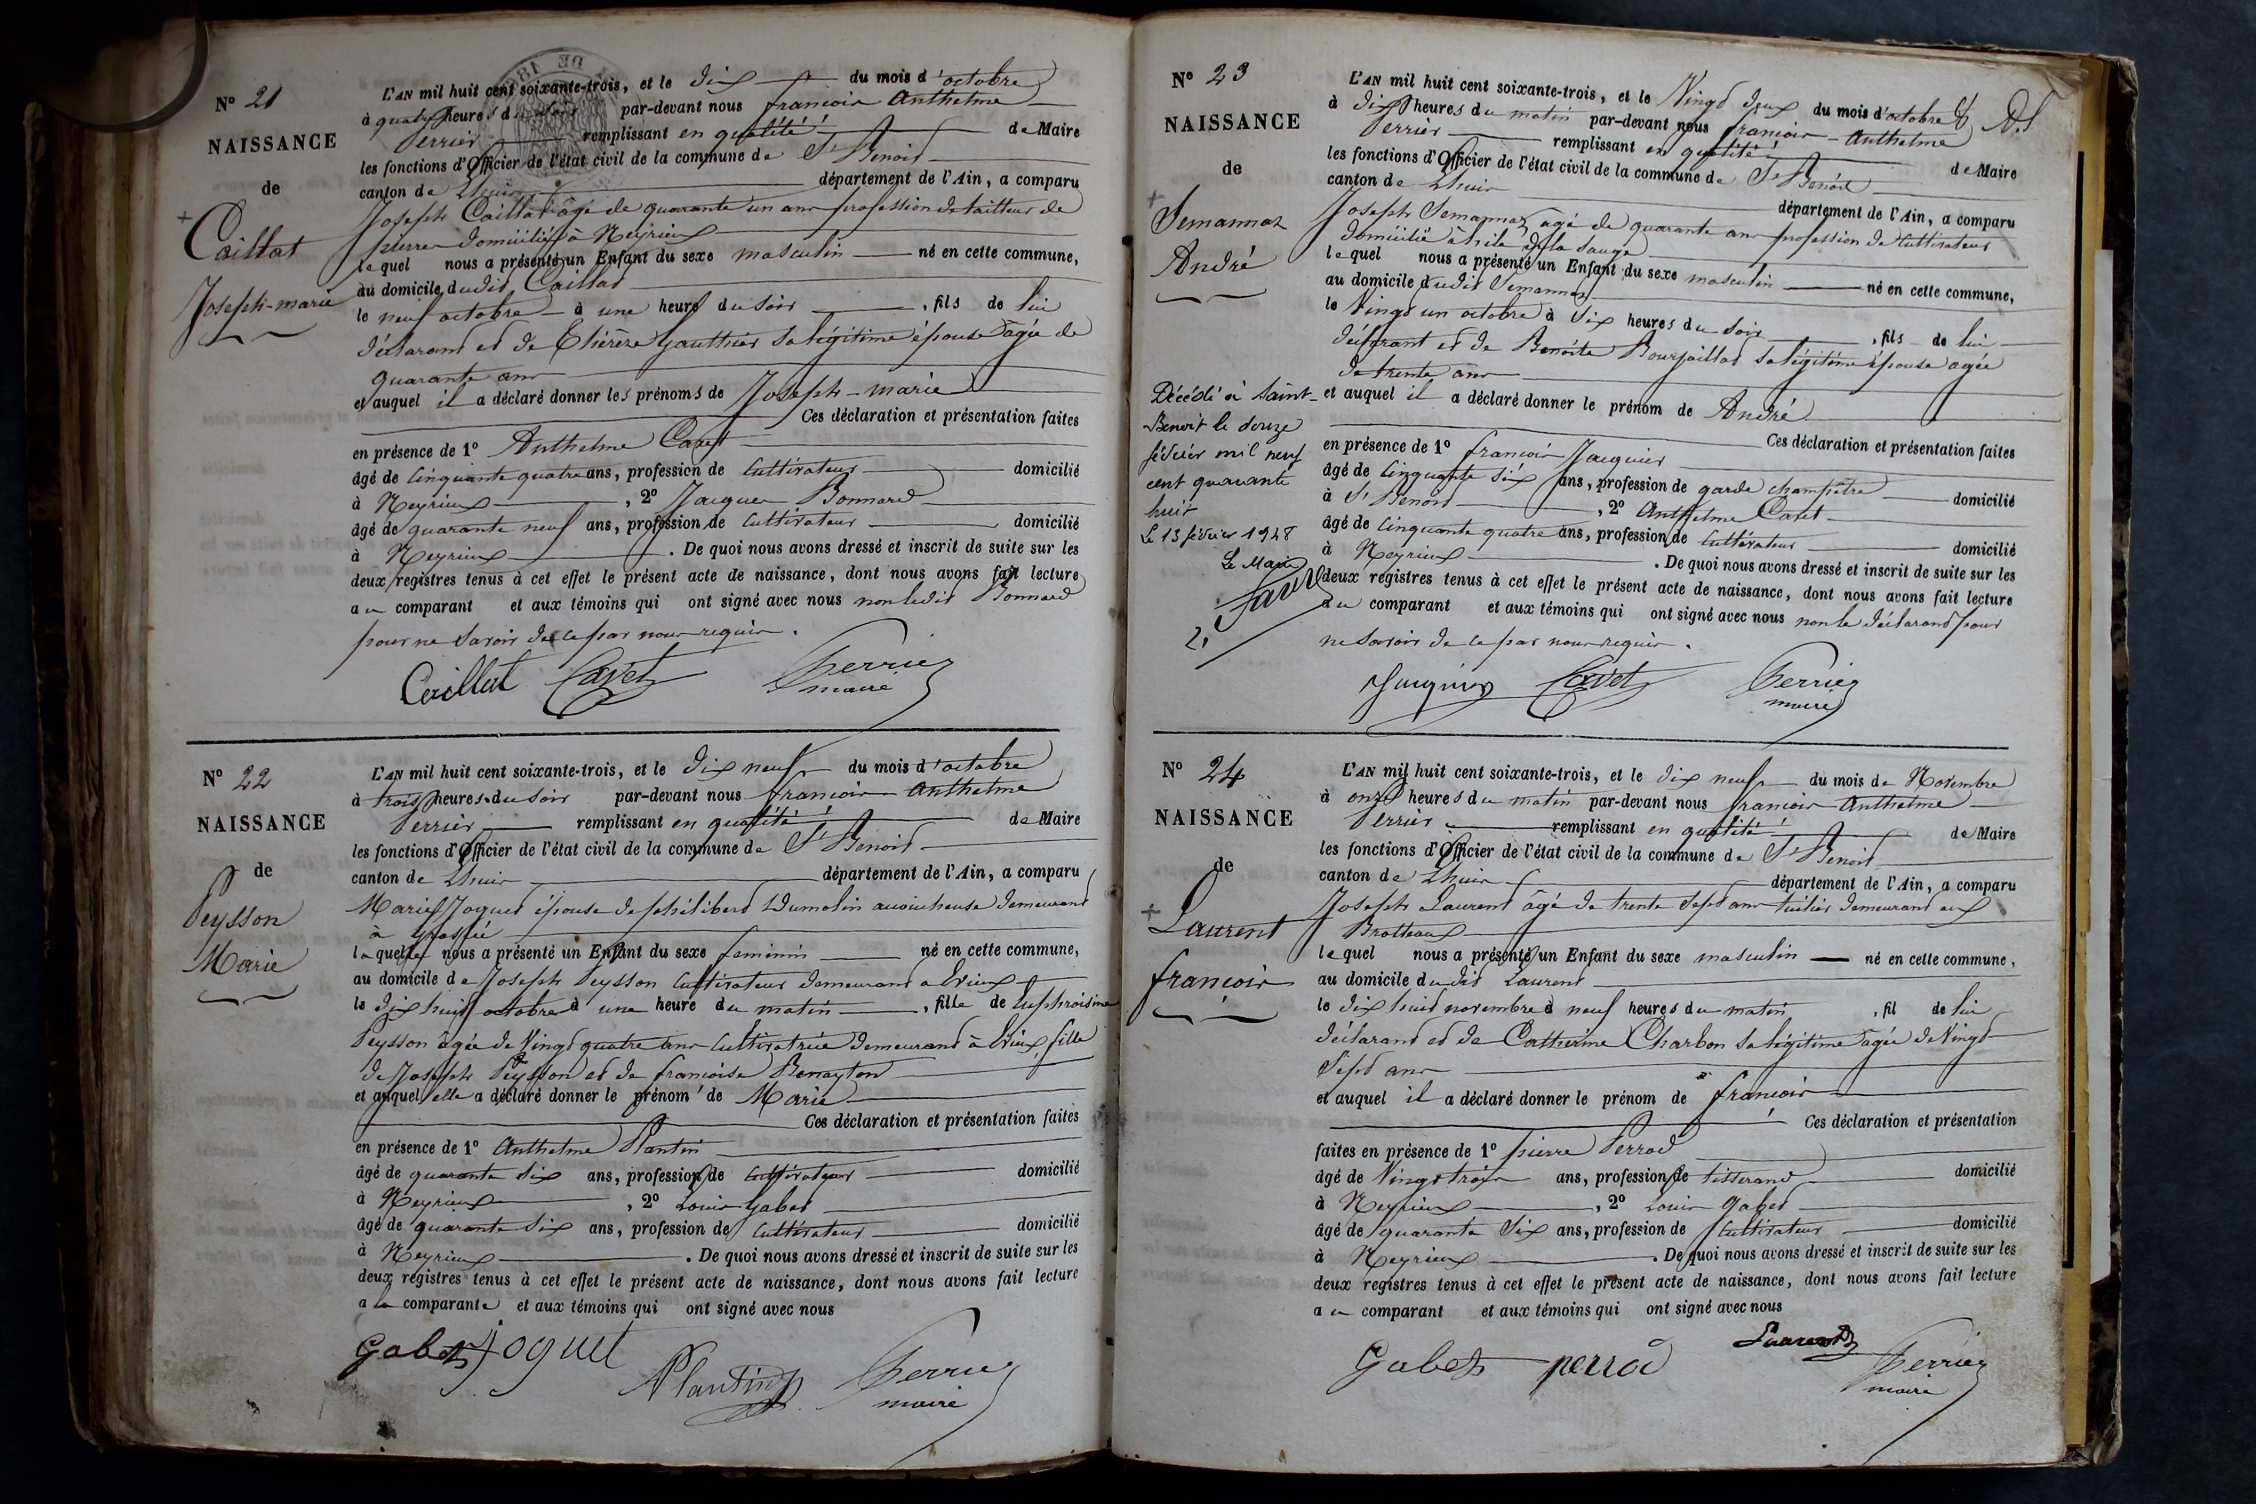 N° 21
NAISSANCE
de
Caillat
Joseph-marie
L'AN mil huit cent soixante-trois, et le dix du mois d'octobre
à quatre heures du soir par-devant nous françois Anthelme
Perrier remplissant en qualité de Maire
les fonctions d'Officier de l'état civil de la commune de St Benoit
canton de Lhuis département de l'Ain, a comparu
Joseph Caillat âgé de quarante un ans profession de tailleur de
pierre domicilié à Neyrieux
lequel nous a présenté un Enfant du sexe masculin né en cette commune,
au domicile dudit Caillat
le neuf octobre à une heure du soir, fils de lui
déclarant et de Thérèze Gauthier sa légitime épouse âgée de
quarante ans
et auquel il a déclaré donner les prénoms de Joseph-marie
Ces déclaration et présentation faites
en présence de 1° Anthelme Cavet
âgé de cinquante quatre ans, profession de cultivateur domicilié
à Neyrieux, 2° Jacques Bonnard
âgé de quarante neuf ans, profession de cultivateur domicilié
à Neyrieux. De quoi nous avons dressé et inscrit de suite sur les
deux registres tenus à cet effet le présent acte de naissance, dont nous avons fait lecture
au comparant et aux témoins qui ont signé avec nous non ledit Bonnard
pour ne savoir de ce par nous requis.
Caillat Cavet Perrier
maire
N° 22
NAISSANCE
de
Peysson
Marie
L'AN mil huit cent soixante-trois, et le dix neuf du mois d'octobre
à trois heures du soir par-devant nous françois Anthelme
Perrier remplissant en qualité de Maire
les fonctions d'Officier de l'état civil de la commune de St Benoit
canton de Lhuis département de l'Ain, a comparu
Marie Joguet épouse de philibert Dumolin demeurant
à
laquelle nous a présenté un Enfant du sexe feminin né en cette commune,
au domicile de Joseph Peysson cultivateur demeurant a Evieux
le dix huit octobre à une heure du matin, fille de Euphroisine
Peysson âgée de Vingt quatre ans cultivatrice demeurant à Evieux, fille
de Joseph Peysson et de françoise
et auquel elle a déclaré donner le prénom de Marie
Ces déclaration et présentation faites
en présence de 1° Anthelme Plantin
âgé de quarante six ans, profession de cultivateur domicilié
à Neyrieux, 2° Louis Gabet
âgé de quarante six ans, profession de cultivateur domicilié
à Neyrieux. De quoi nous avons dressé et inscrit de suite sur les
deux registres tenus à cet effet le présent acte de naissance, dont nous avons fait lecture
a la comparante et aux témoins qui ont signé avec nous
Gabet Joguet
Plantin Perrier
maire
N° 23
NAISSANCE
de
Semannaz
André
Décédé à Saint-
Benoit le douze
février mil neuf
cent quarante
huit
Le 13 février 1948
Le Maire
L'AN mil huit cent soixante-trois, et le Vingt deux du mois d'octobre
à dix heures du matin par-devant nous françois Anthelme
Perrier remplissant en qualité de Maire
les fonctions d'Officier de l'état civil de la commune de St Benoit
canton de Lhuis département de l'Ain, a comparu
Joseph Semannaz âgé de quarante ans profession de cultivateur
domicilié à l'isle de la Sauge
lequel nous a présenté un Enfant du sexe masculin né en cette commune,
au domicile dudit Semannaz
le Vingt un octobre à six heures du soir, fils de lui
déclarant et de Benoite Bourjaillat sa légitime épouse agée
de trente ans
et auquel il a déclaré donner le prénom de André
Ces déclaration et présentation faites
en présence de 1° françois Jacquier
âgé de cinquante six ans, profession de garde champêtre domicilié
à St Benoit, 2° Anthelme Cavet
âgé de cinquante quatre ans, profession de cultivateur domicilié
à Neyrieux. De quoi nous avons dressé et inscrit de suite sur les
deux registres tenus à cet effet le présent acte de naissance, dont nous avons fait lecture
au comparant et aux témoins qui ont signé avec nous non le déclarant pour
ne savoir de ce par nous requis.
Jacquier Cavet Perrier
maire
N° 24
NAISSANCE
de
Laurent
françois
L'AN mil huit cent soixante-trois, et le dix neuf du mois de Novembre
à onze heures du matin par-devant nous françois Anthelme
Perrier remplissant en qualité de Maire
les fonctions d'Officier de l'état civil de la commune de St Benoit
canton de Lhuis département de l'Ain, a comparu
Joseph Laurent âgé de trente sept ans tuilier demeurant aux
Brotteaux
lequel nous a présenté un Enfant du sexe masculin né en cette commune,
au domicile dudit Laurent
le dix huit novembre à neuf heures du matin, fil de lui
déclarant et de Catherine Charbon sa légitime âgée de Vingt
sept ans
et auquel il a déclaré donner le prénom de françois
Ces déclaration et présentation
faites en présence de 1° pierre Perrod
âgé de Vingt trois ans, profession de tisserand domicilié
à Neyrieux, 2° Louis Gabet
âgé de quarante six ans, profession de cultivateur domicilié
à Neyrieux. De quoi nous avons dressé et inscrit de suite sur les
deux registres tenus à cet effet le présent acte de naissance, dont nous avons fait lecture
au comparant et aux témoins qui ont signé avec nous
Gabet perrod Laurent Perrier
maire